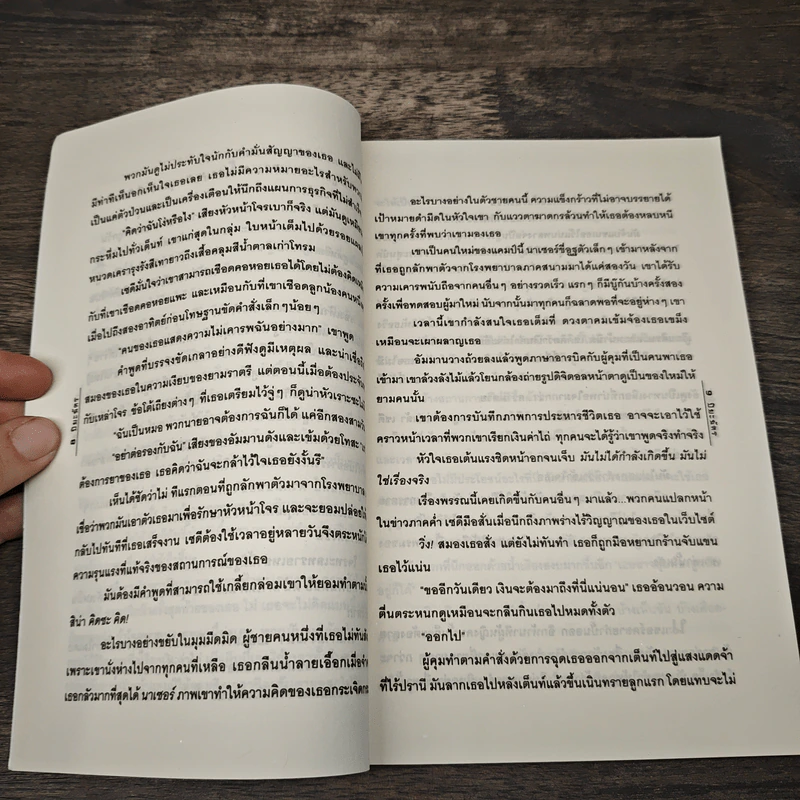 พวกมันดูไม่ประทับใจนักกับคำมั่นสัญญาของเธอ และไม่มี
มีท่าทีเห็นอกเห็นใจเธอเลย เธอไม่มีความหมายอะไรสำหรับพวก
เป็นแค่ตัวป่วนและเป็นเครื่องเตือนให้นึกถึงแผนการธุรกิจที่ไม่สำเร็จ
"คิดว่าฉันโง่หรือไง" เสียงหัวหน้าโจรเบาก็จริง แต่มันดูเหมือน
กระหึ่มไปทั่วเต็นท์ เขาแก่สุดในกลุ่ม ใบหน้าเต็มไปด้วยรอยแผล
หนวดเครารุงรังสีเทายาวถึงเสื้อคลุมสีน้ำตาลเก่าโทรม
เซดีมั่นใจว่าเขาสามารถเชือดคอหอยเธอได้โดยไม่ต้องคิด
กับที่เขาเชือดคอหอยแพะ และเหมือนกับที่เขาเชือดลูกน้องคนหนึ่ง
เมื่อไปถึงสองอาทิตย์ก่อนโทษฐานขัดคำสั่งเล็กๆน้อยๆ
"คนของเธอแสดงความไม่เคารพฉันอย่างมาก" เขาพูด
คำพูดที่บรรจงขัดเกลาอย่างดีฟังดูมีเหตุผล และน่าเชื่อ
สมองของเธอในความเงียบของยามราตรี แต่ตอนนี้เมื่อต้องประจัน
กับเหล่าโจร ข้อโต้เถียงต่างๆ ที่เธอเตรียมไว้จู่ๆ ก็ดูน่าหัวเราะเยาะ
"ฉันเป็นหมอ พวกนายอาจต้องการฉันก็ได้ แค่อีกสองสามวัน
"อย่าต่อรองกับฉัน" เสียงของอัมมานดังและเข้มด้วยโทสะ
ต้องการยาของเธอ เธอคิดว่าฉันจะกล้าไว้ใจเธอยังงั้นรึ"
เห็นได้ชัดว่าไม่ ทีแรกตอนที่ถูกลักพาตัวมาจากโรงพยาบาล
เชื่อว่าพวกมันเอาตัวเธอมาเพื่อรักษาหัวหน้าโจร และจะยอมปล่อย
กลับไปทันทีที่เธอเสร็จงาน เซดีต้องใช้เวลาอยู่หลายวันจึงตระหนัก
ความรุนแรงที่แท้จริงของสถานการณ์ของเธอ
มันต้องมีคำพูดที่สามารถใช้เกลี้ยกล่อมเขาให้ยอมทำตาม
สิน่า คิดซะ คิด!
อะไรบางอย่างขยับในมุมมืดมิด ผู้ชายคนหนึ่งที่เธอไม่ทัน
เพราะเขานั่งห่างไปจากทุกคนที่เหลือ เธอกลืนน้ำลายเอื๊อกเมื่อ
เธอกลัวมากที่สุดได้ นาเซอร์ ภาพเขาทำให้ความคิดของเธอกระเจิด
8 ปิยะฉัตร
อะไรบางอย่างในตัวชายคนนี้ ความแข็งกร้าวที่ไม่อาจบรรยายได้
เป้าหมายดำมืดในหัวใจเขา กับแววตาฆาตกรล้วนทำให้เธอต้องหลบหนี
เขาทุกครั้งที่พบว่าเขามองเธอ
เขาเป็นคนใหม่ของแคมป์นี้ นาเซอร์ขี่อูฐตัวเล็กๆ เข้ามาหลังจาก
ที่เธอถูกลักพาตัวจากโรงพยาบาลภาคสนามมาได้แค่สองวัน เขาได้รับ
ความเคารพนับถือจากคนอื่นๆ อย่างรวดเร็ว แรกๆ ก็มีบู๊กันบ้างครั้งสอง
ครั้งเพื่อทดสอบผู้มาใหม่ นับจากนั้นมาทุกคนก็ฉลาดพอที่จะอยู่ห่างๆ เขา
เวลานี้เขากำลังสนใจเธอเต็มที่ ดวงตาคมเข้มจ้องเธอเขม็ง
เหมือนจะเผาผลาญเธอ
อัมมานวางถ้วยลงแล้วพูดภาษาอารบิคกับผู้คุมที่เป็นคนพาเธอ
เข้ามา เขาล้วงลังไม้แล้วโยนกล้องถ่ายรูปดิจิตอลหน้าตาดูเป็นของใหม่ให้
ยามคนนั้น
เขาต้องการบันทึกภาพการประหารชีวิตเธอ อาจจะเอาไว้ใช้
คราวหน้าเวลาที่พวกเขาเรียกเงินค่าไถ่ ทุกคนจะได้รู้ว่าเขาพูดจริงทำจริง
หัวใจเธอเต้นแรงชิดหน้าอกจนเจ็บ มันไม่ได้กำลังเกิดขึ้น มันไม่
ใช่เรื่องจริง
เรื่องพรรณนี้เคยเกิดขึ้นกับคนอื่นๆ มาแล้ว...พวกคนแปลกหน้า
ในข่าวภาคค่ำ เซดีมือสั่นเมื่อนึกถึงภาพร่างไร้วิญญาณของเธอในเว็บไซต์
วิ่ง! สมองเธอสั่ง แต่ยังไม่ทันทำ เธอก็ถูกมือหยาบกร้านจับแขน
เธอไว้แน่น
"ขออีกวันเดียว เงินจะต้องมาถึงที่นี่แน่นอน" เธออ้อนวอน ความ
ตื่นตระหนกดูเหมือนจะกลืนกินเธอไปหมดทั้งตัว
"ออกไป"
ผู้คุมทำตามคำสั่งด้วยการฉุดเธอออกจากเต็นท์ไปสู่แสงแดดจ้า
ที่ไร้ปรานี มันลากเธอไปหลังเต็นท์แล้วขึ้นเนินทรายลูกแรก โดยแทบจะไม่
9 ปิยะฉัตร